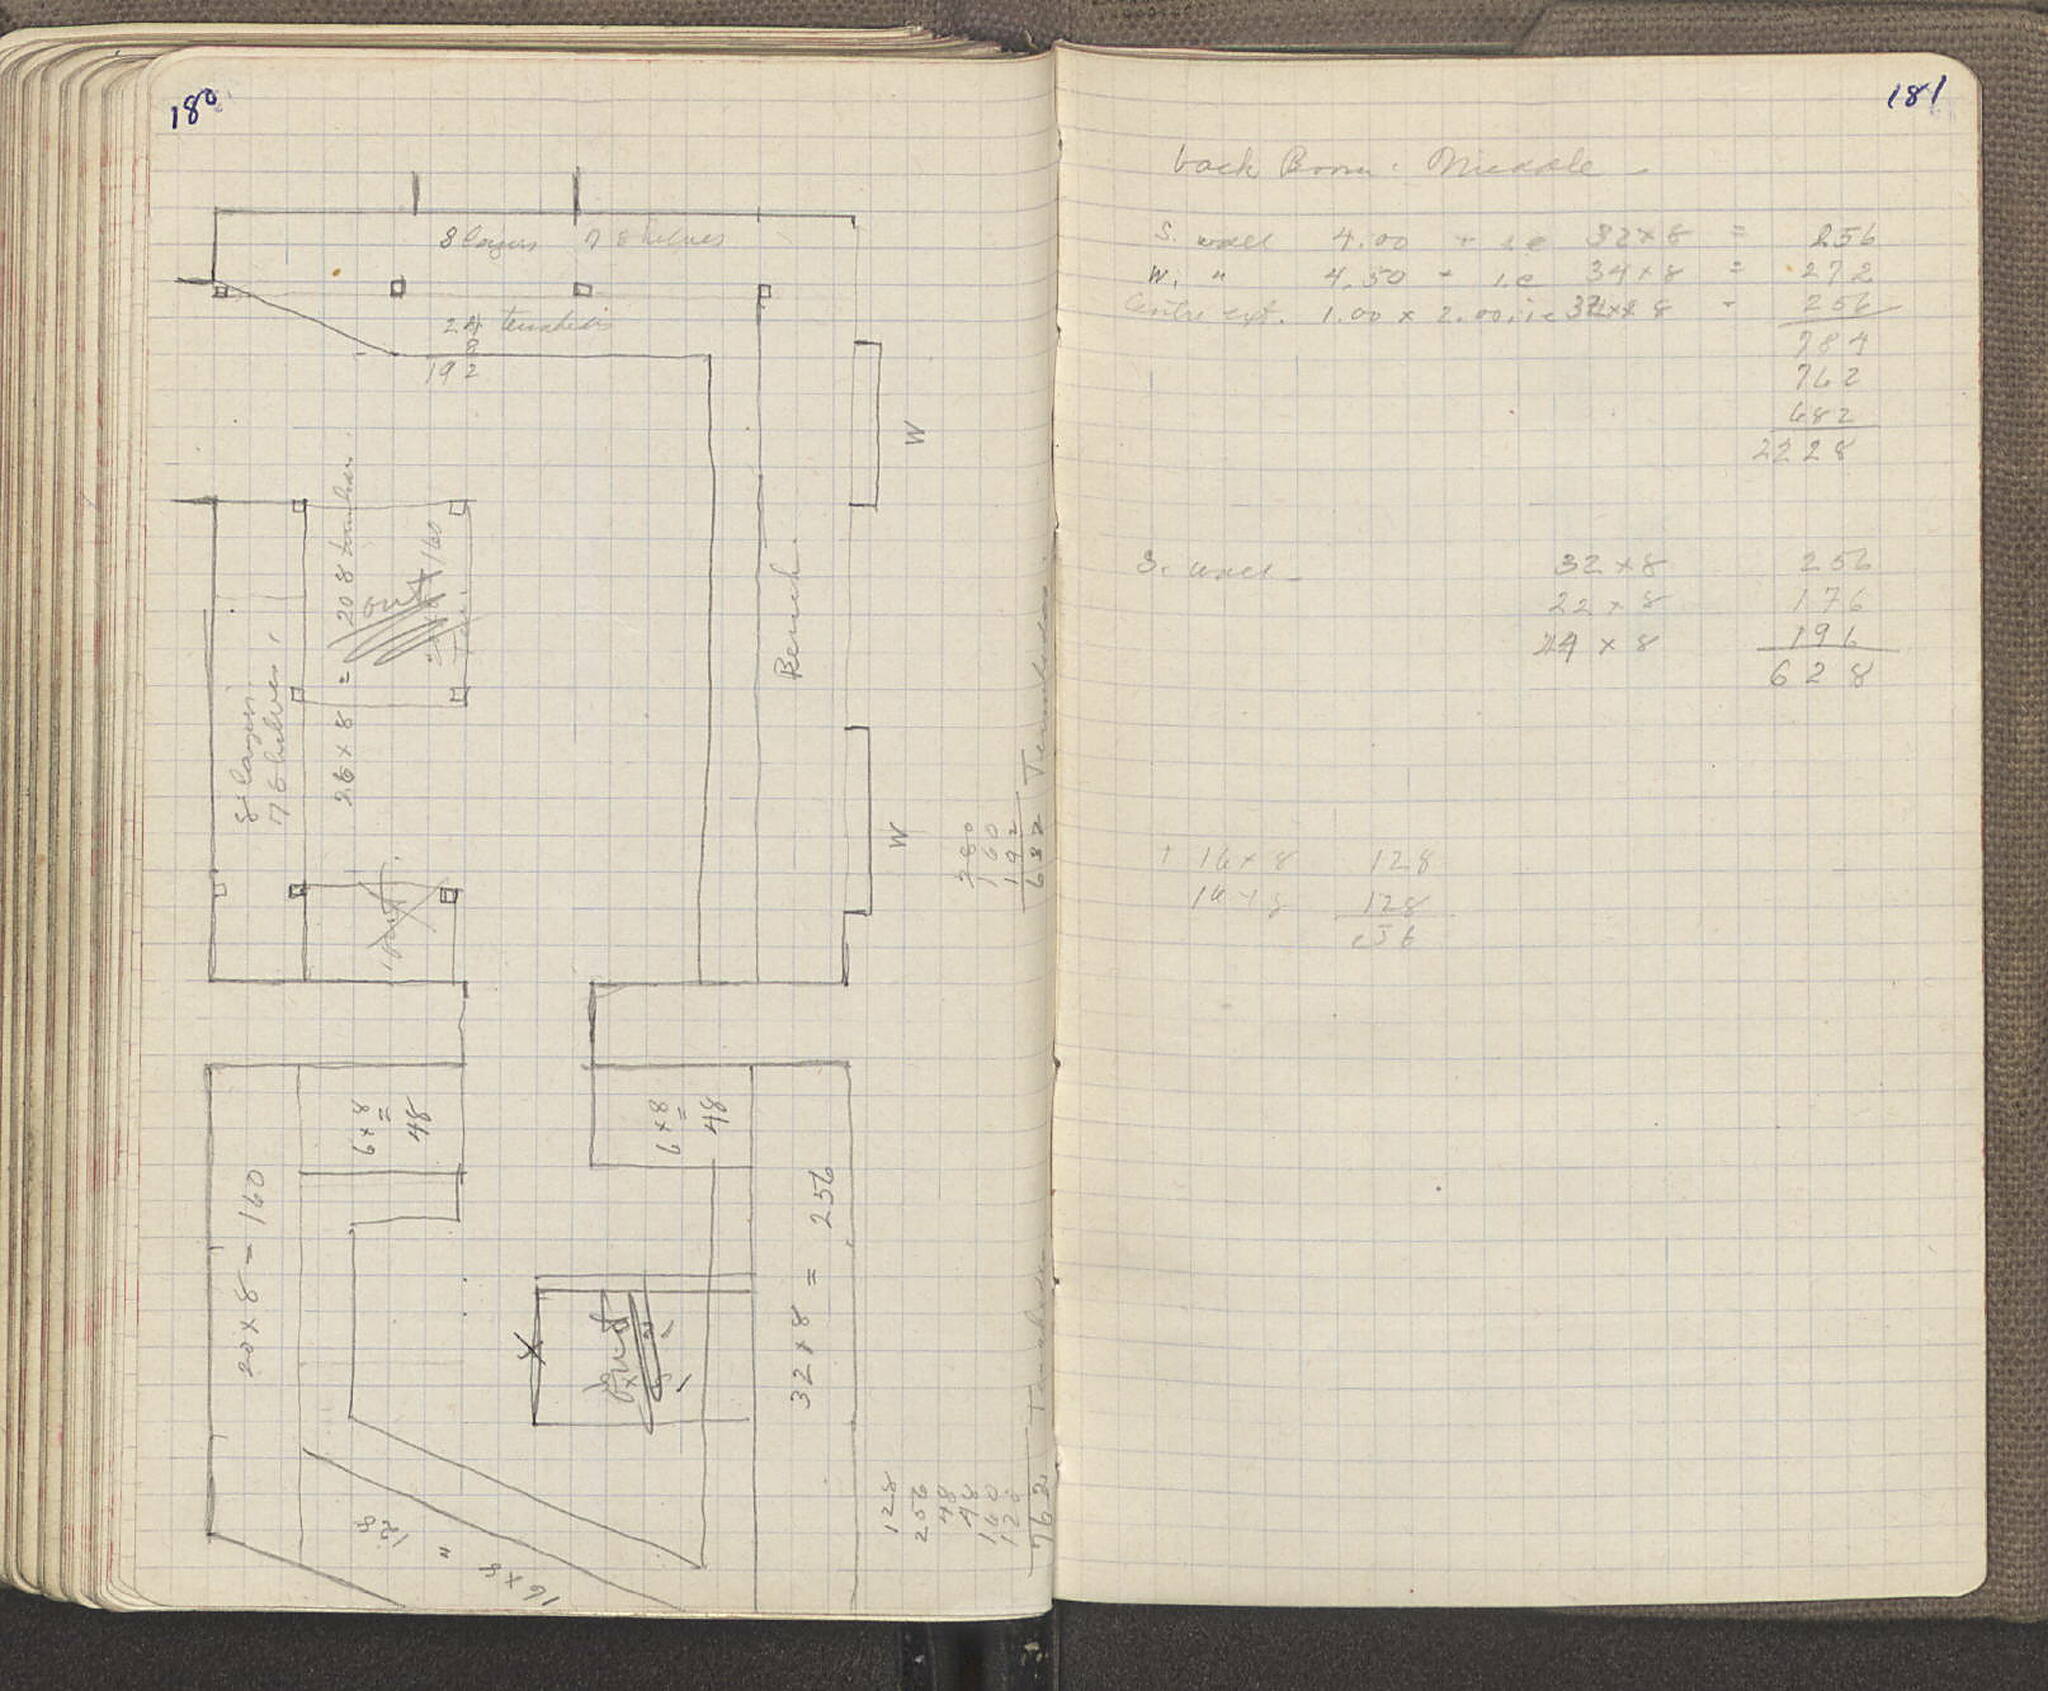 180
8 layers 7 shelves
24
8
192
8 layers
7 shelves
26 x 8 = 208
out
160
out
Bench.
W
W
280
160
192
682
6 x 8
=
48
6 x 8
=
48
20 x 8 = 160
32 x 8 = 256
out
X
16 x 8 " 128
128
256
48
48
160
128
762
181
back Room: Middle
S. wall 4.00 - i.e 32 x 8 = 256
W. " 4.50 - i.e 34 x 8 = 272
Centre ext. 1.00 x 2.00, i.e 32 x 8 - 256
784
762
682
2228
S. wall - 32 x 8 256
22 x 8 176
24 x 8 196
628
16 x 8 128
16 x 8 128
256